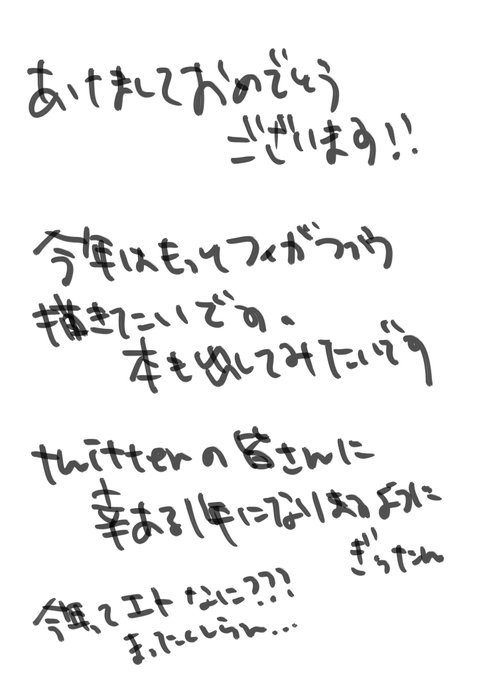 あけましておめでとう
ございます!!
今年はもっとフィガつかう
描きたいです。
本も出してみたいです
twitterの皆さんに
幸ある1年になりますように
ぎったん
今年ってエトなに???
まったくしらん...